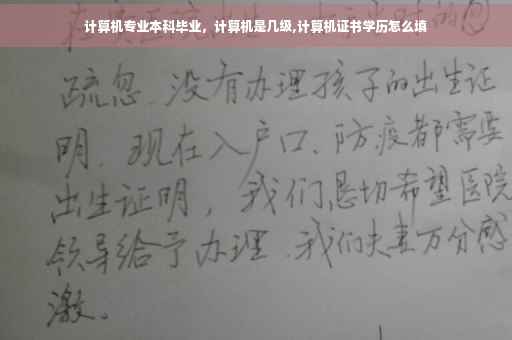 计算机专业本科毕业，计算机是几级,计算机证书学历怎么填
疏忽、没有办理孩子的出生证
明、现在入户口、防疫都需要
出生证明，我们恳切希望医院
领导给予办理、我们夫妻万分感
激。